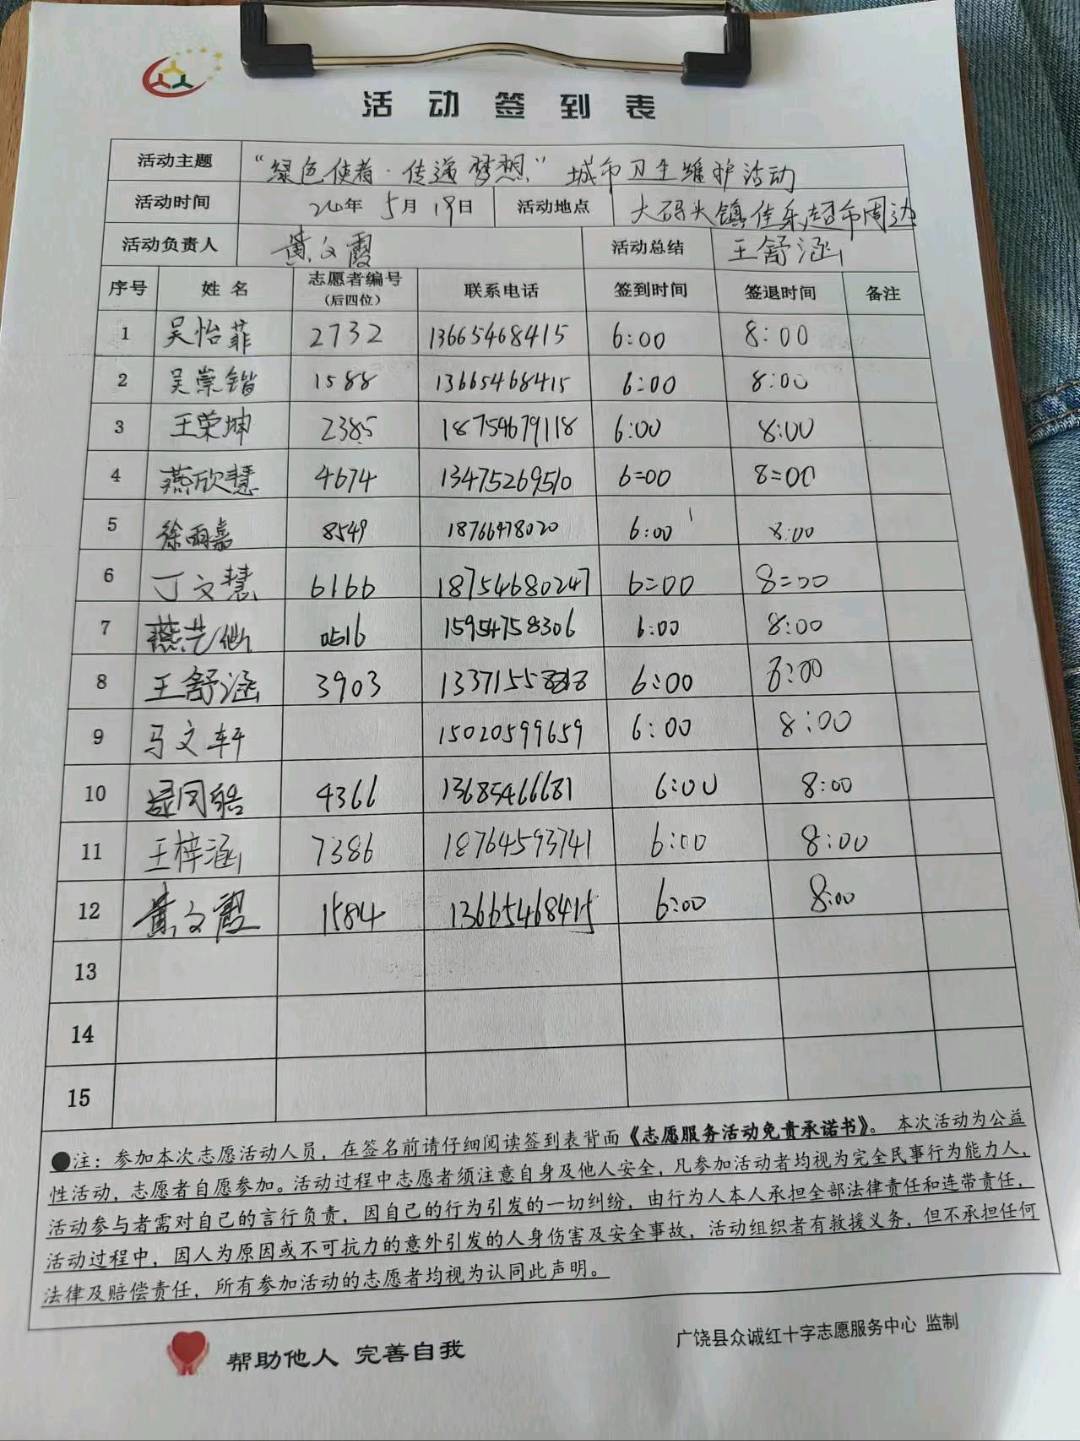 活动签到表
活动主题 “绿色使者·传递梦想”城市卫生维护活动
活动时间 年5月19日 活动地点 大码头镇佳乐超市周边
活动负责人 黄文霞 活动总结 王舒涵
序号 姓名 志愿者编号（后四位） 联系电话 签到时间 签退时间 备注
1 吴怡菲 2732 13665468415 6:00 8:00
2 吴崇锴 1588 13665468415 6:00 8:00
3 王荣坤 2385 18754679118 6:00 8:00
4 燕欣慧 4674 13475269510 6:00 8:00
5 徐雨嘉 8549 18766478020 6:00 8:00
6 丁文慧 6166 18754680247 6:00 8:00
7 燕艺仙 0516 15954758306 6:00 8:00
8 王舒涵 3903 6:00 8:00
9 马文轩 15020599659 6:00 8:00
10 4366 13685466681 6:00 8:00
11 王梓涵 7386 18764593741 6:00 8:00
12 黄文霞 1584 13665468415 6:00 8:00
13
14
15
●注：参加本次志愿活动人员，在签名前请仔细阅读签到表背面《志愿服务活动免责承诺书》。本次活动为公益
性活动，志愿者自愿参加。活动过程中志愿者须注意自身及他人安全，凡参加活动者均视为完全民事行为能力人，
活动参与者需对自己的言行负责，因自己的行为引发的一切纠纷，由行为人本人承担全部法律责任和连带责任，
活动过程中，因人为原因或不可抗力的意外引发的人身伤害及安全事故，活动组织者有救援义务，但不承担任何
法律及赔偿责任，所有参加活动的志愿者均视为认同此声明。
帮助他人 完善自我
广饶县众诚红十字志愿服务中心 监制